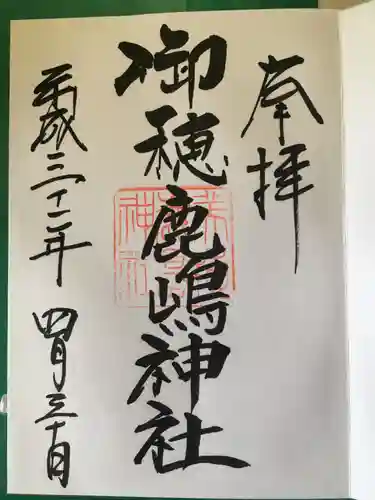 奉拝
御穂鹿嶋神社
平成三十一年 四月三十日